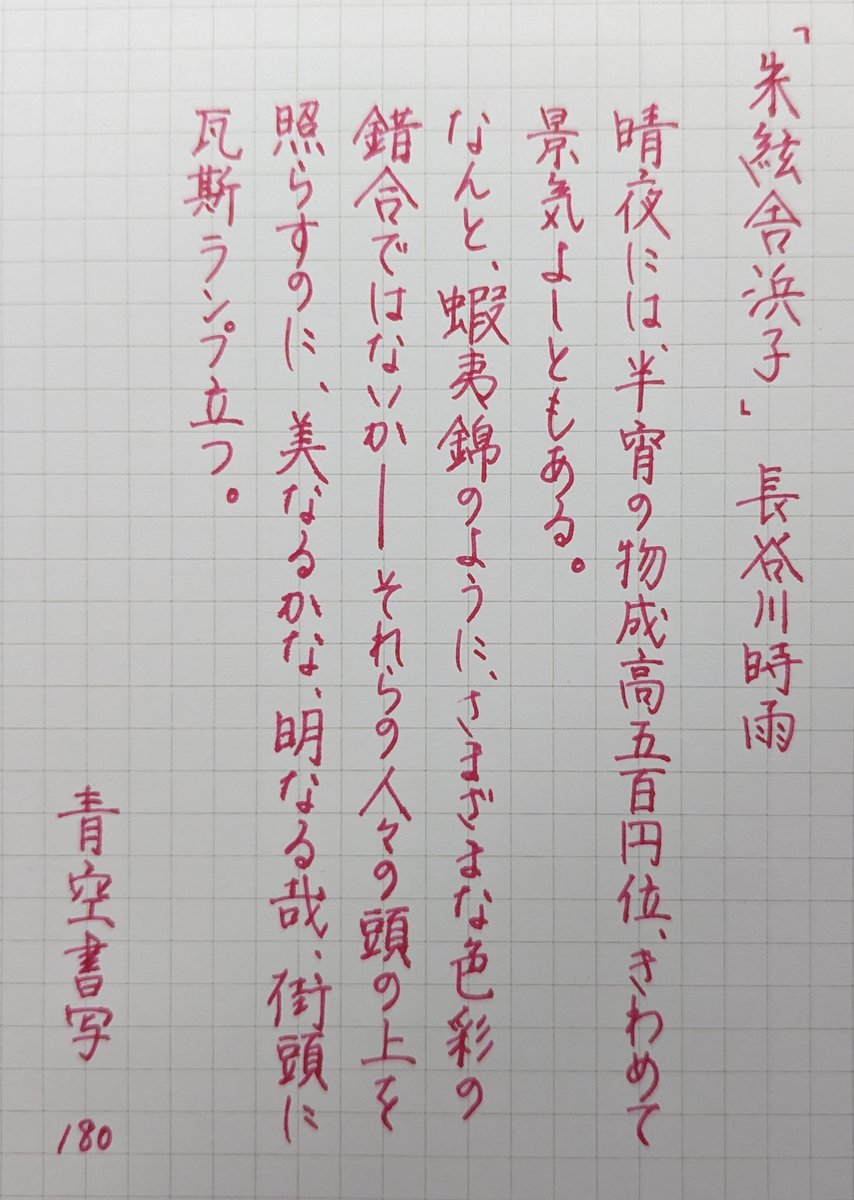 「朱絃舎浜子」 長谷川時雨
晴夜には、半宵の物成高五百円位、きわめて
景気よしともある。
なんと、蝦夷錦のように、さまざまな色彩の
錯合ではないか――それらの人々の頭の上を
照らすのに、美なるかな、明なる哉、街頭に
瓦斯ランプ立つ。
青空書写 180